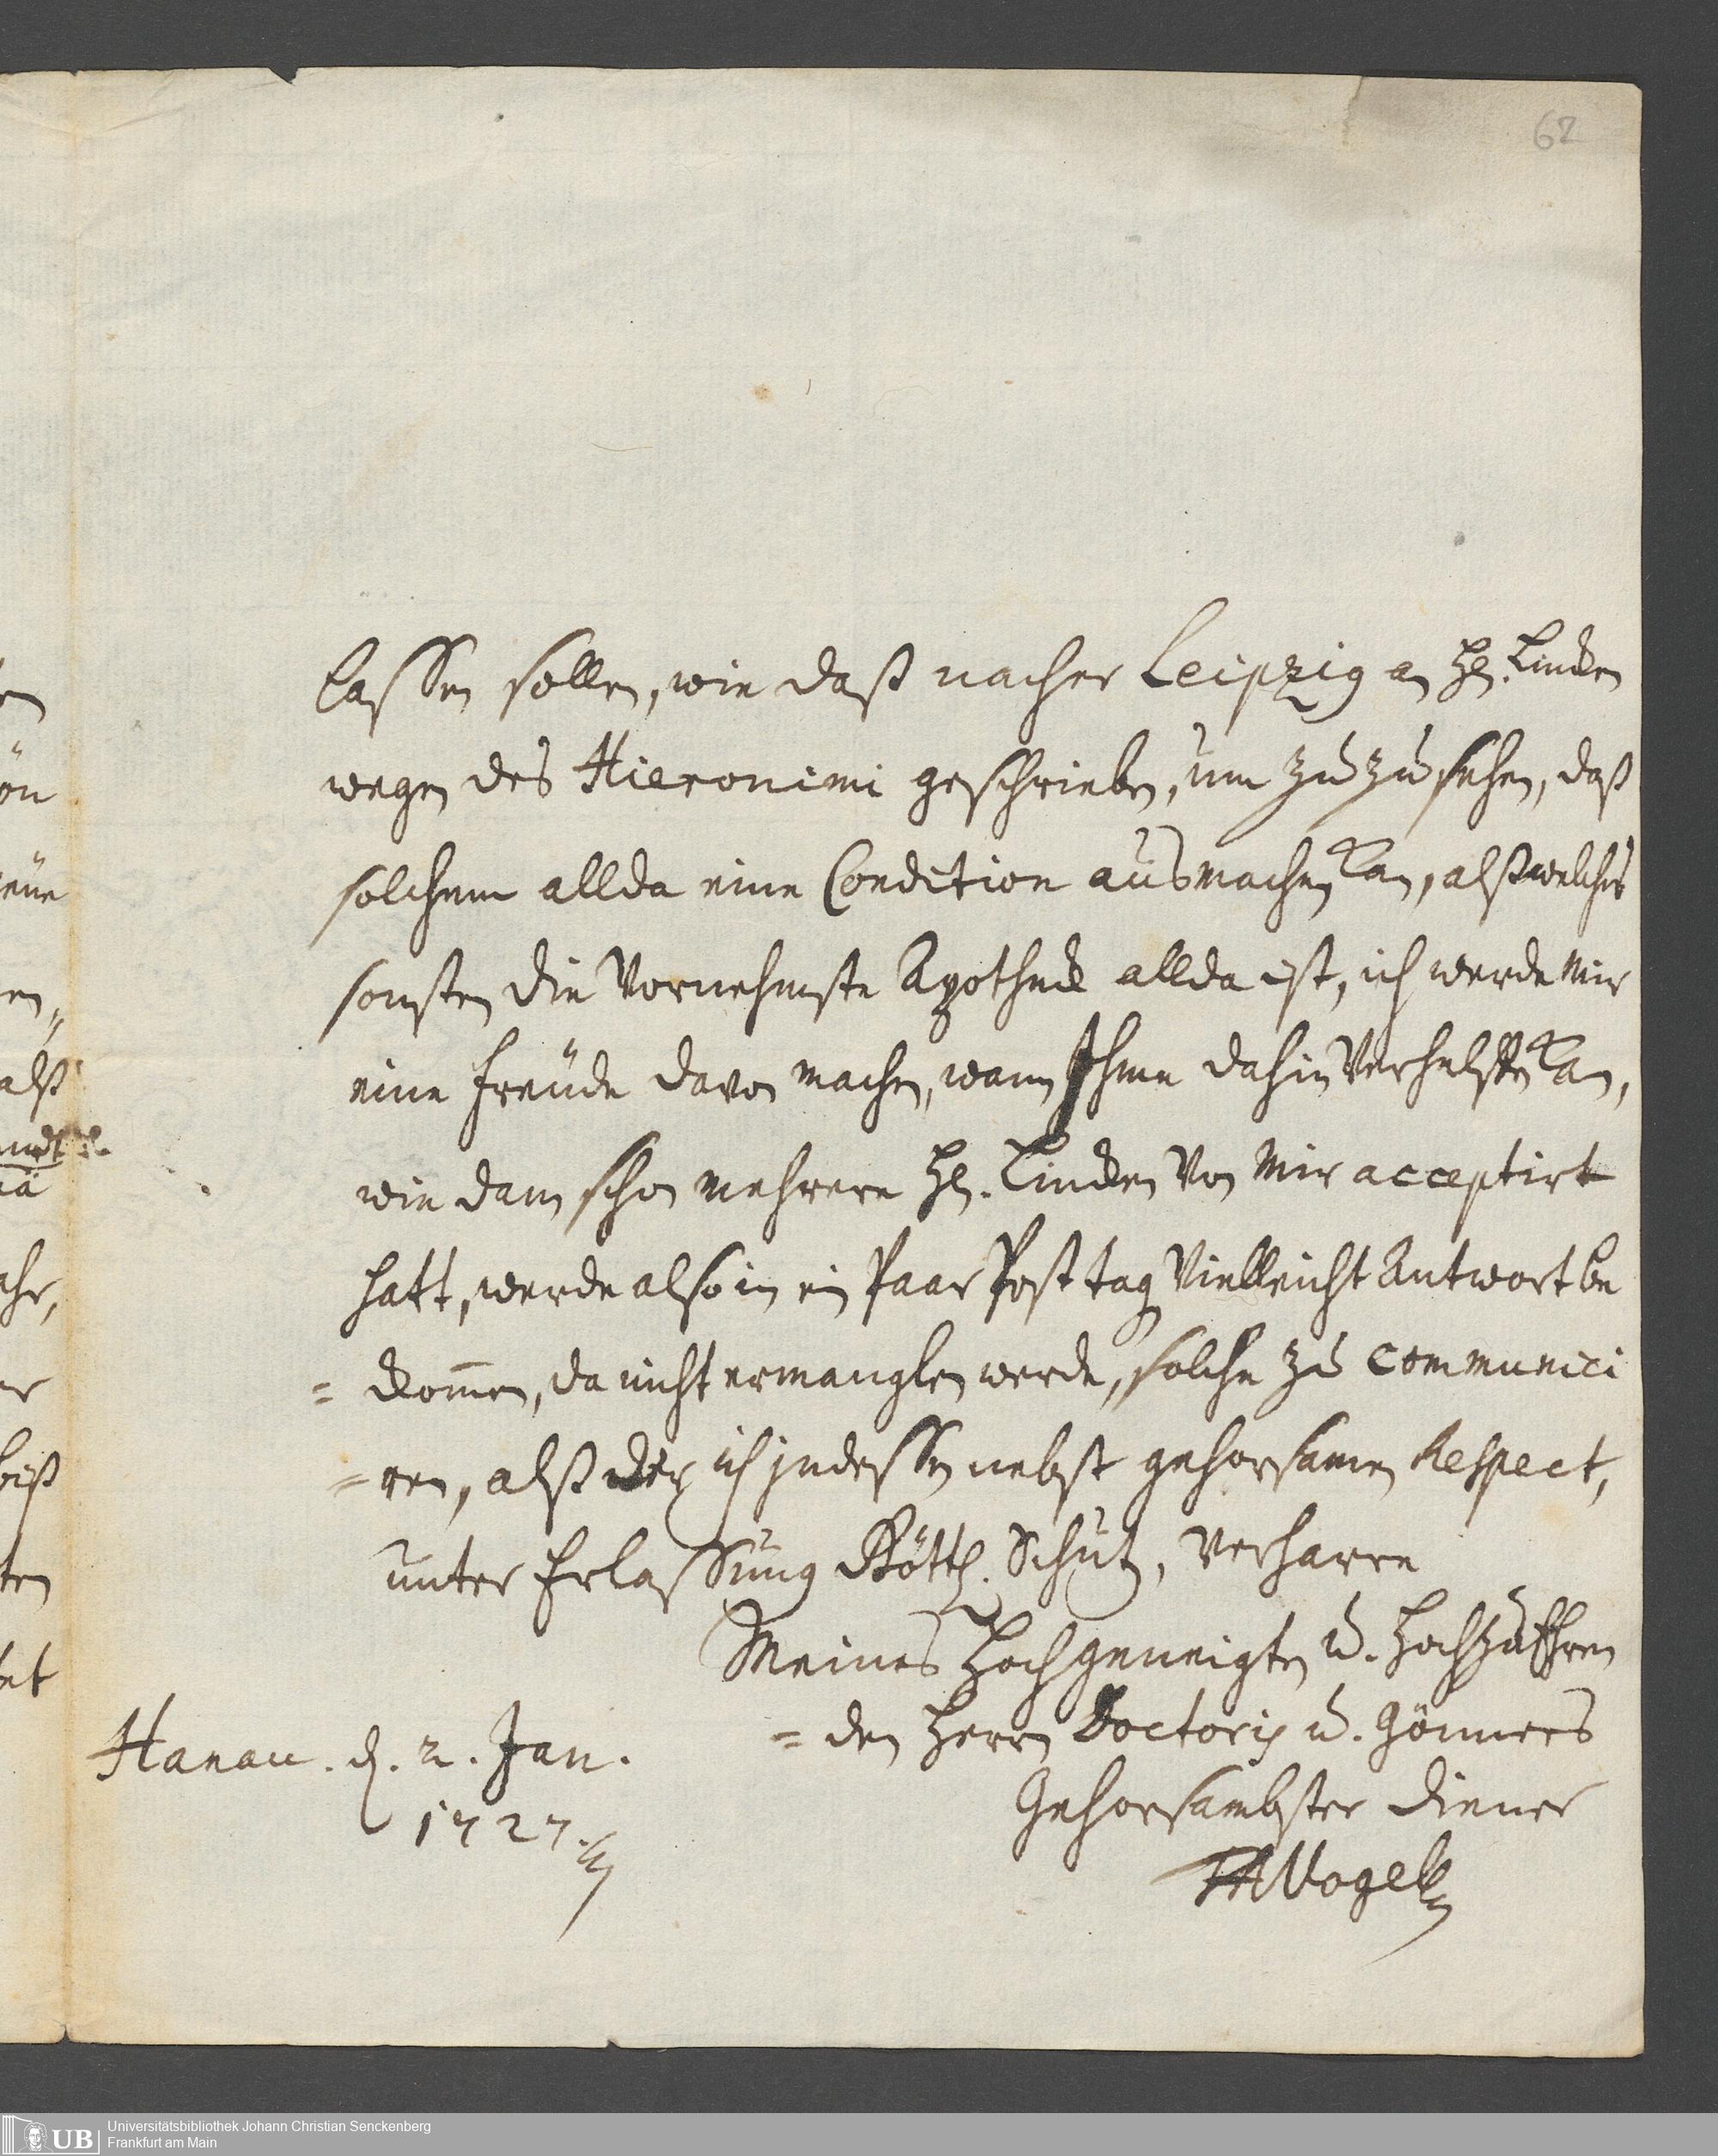 62
laßen sollen, wie daß nacher Leipzig an H. Lincken
wegen des Hieronimi geschrieben, um zu zu sehen, daß
solchem allda eine Condition ausmachen kan, alß welches
sonsten die Vornehmste Apotheck allda ist, ich werde Mir
eine Freüde davon machen, wann Ihme dahin Verhelffen kan,
wie dann schon mehrere H. Lincken Von Mir acceptirt
hatt, werde also in ein Paar Posttag Vielleicht Antwort be
= kom̄en, da nicht ermanglen werde, solche zu communici
= ren, alß der ich indeßen nebst gehorsamen Respect,
unter Erlaßung Göttl. Schutz, Verharre
Meines Hochgeneigten u. HochzuEhren
= den Herrn Doctoris u. Gönners
Gehorsambster Diener
Vogel
Hanau. d. 2. Jan.
1727.
UB Universitätsbibliothek Johann Christian Senckenberg
Frankfurt am Main